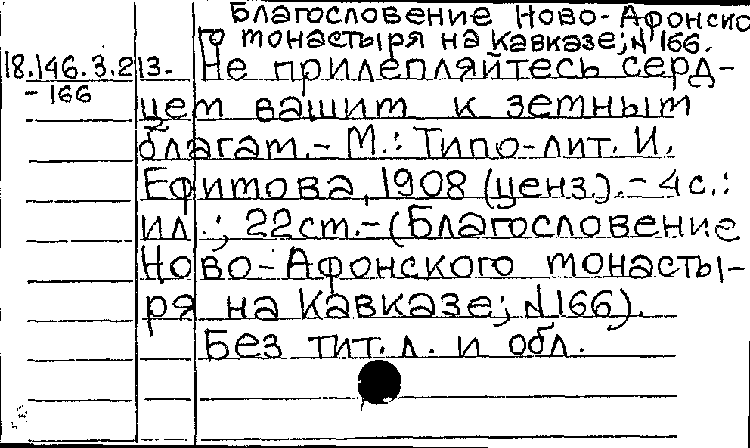 Благословение Ново-Афонско
го монастыря на Кавказе; №166.
18.146.3.213.- Не прилепляйтесь серд-
-166 цем вашим к земным
благам.- М.: Типо-лит. И.
Ефимова, 1908 (ценз.).- 4с.:
ил.; 22см.-(Благословение
Ново-Афонского монасты-
ря на Кавказе; №166).
Без тит. л. и обл.